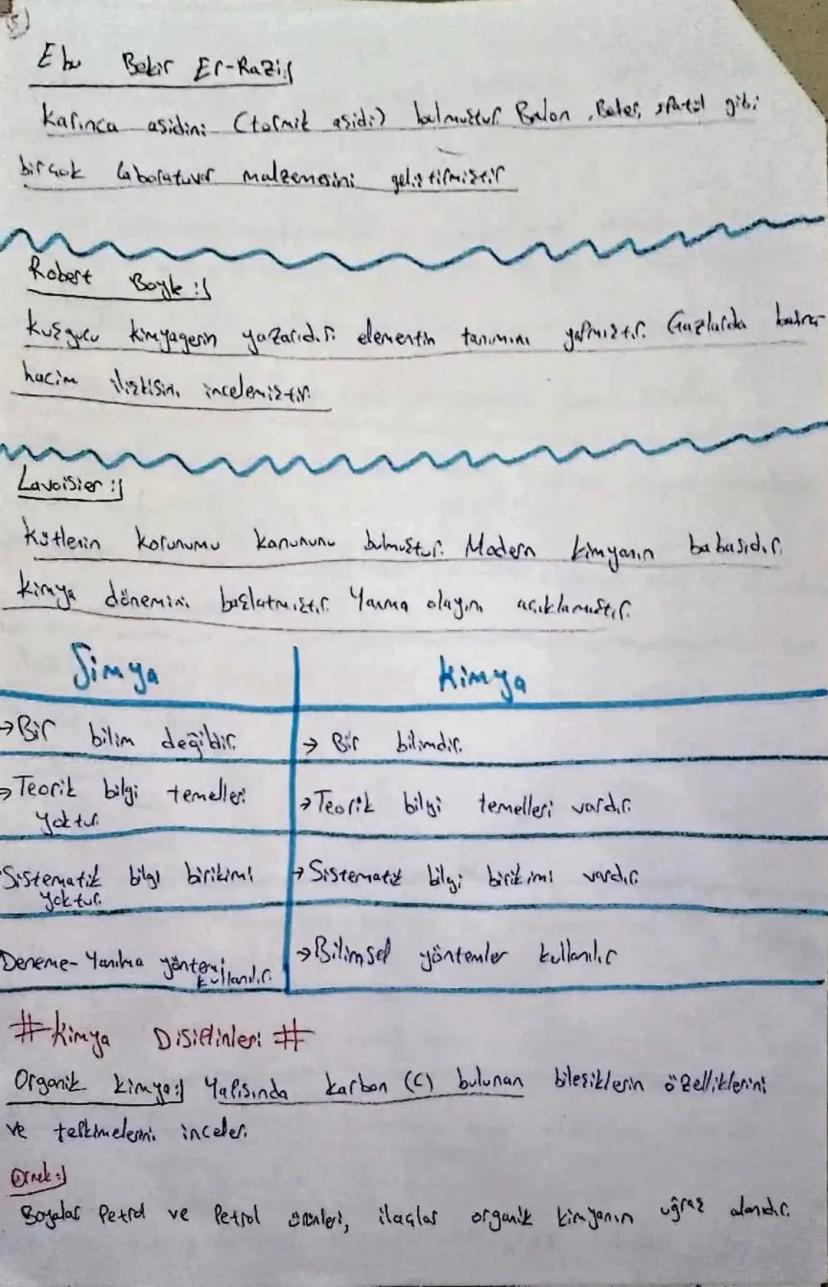 5)
Ebu Bekir Er-Razi:
karınca asidini (formik asidi) bulmuştur. Balon, Beher, spatül gibi
birçok laboratuvar malzemesini geliştirmiştir
Robert Boyle:
kuşgucu kimyagerin yazarıdır. elementin tanımını yapmıştır. Gazlarda basınç-
hacim ilişkisini incelemiştir.
Lavoisier:
kütlenin korunumu kanununu bulmuştur. Modern kimyanın babasıdır.
kimya dönemini başlatmıştır. Yanma olayını açıklamıştır.
Simya kimya
→Bir bilim değildir. → Bir bilimdir.
→Teorik bilgi temelleri →Teorik bilgi temelleri vardır.
yoktur.
Sistematik bilgi birikimi →Sistematik bilgi birikimi vardır.
yoktur.
Deneme-Yanılma yöntemi →Bilimsel yöntemler kullanılır
kullanılır.
#kimya Disiplinleri #
Organik kimya: Yapısında karbon (C) bulunan bileşiklerin özelliklerini
ve tepkimelerini inceler.
Örnek:
Boyalar Petrol ve Petrol ürünleri, ilaçlar organik kimyanın uğraş alanıdır.